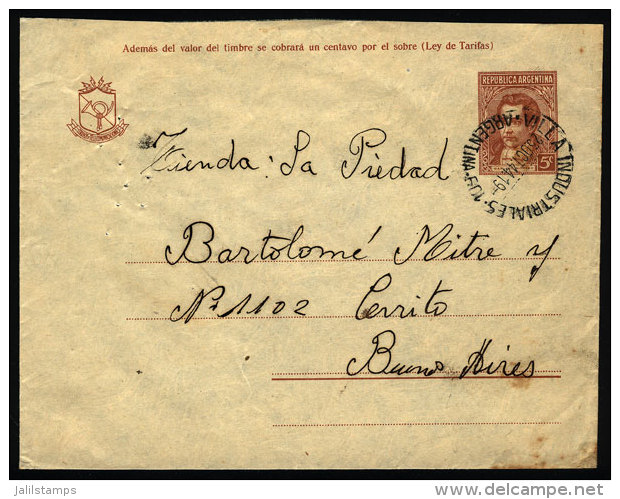 Además del valor del timbre se cobrará un centavo por el sobre (Ley de Tarifas)
REPUBLICA ARGENTINA
5c
VILLA INDUSTRIALES · 109 · ARGENTINA
Tienda: La Piedad
Bartolomé Mitre y
Nº 1102 Cerrito
Buenos Aires
jalilstamps
www.delcampe.net